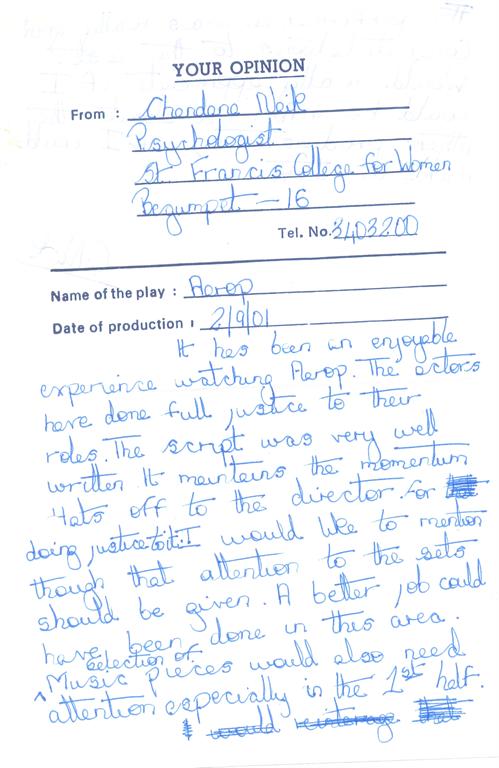 YOUR OPINION
From : Chandana Naik
Psychologist
St. Francis College for Women
Begumpet - 16
Tel. No. 3403200
Name of the play : Aarop
Date of production : 2/9/01
It has been an enjoyable
experience watching Aarop. The actors
have done full justice to their
roles. The script was very well
written. It maintains the momentum
Hats off to the director for
doing justice to it! I would like to mention
though that attention to the sets
should be given. A better job could
have been done in this area.
selection of
^ Music pieces would also need
attention especially in the 1st half.
would